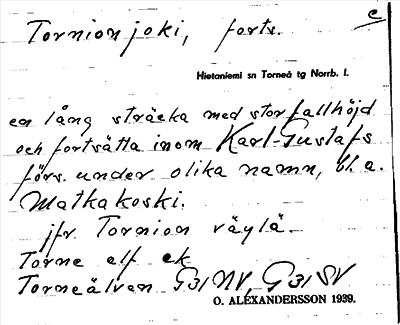 c
Tornionjoki, forts.
Hietaniemi sn Torneå tg Norrb. l.
en lång sträcka med stor fallhöjd
och fortsätta inom Karl-Gustafs
förs. under olika namn, bl. a.
Matkakoski.
jfr Tornion väylä.
Torne elf ek
Torneälven G31NV, G31SV
O. ALEXANDERSSON 1939.